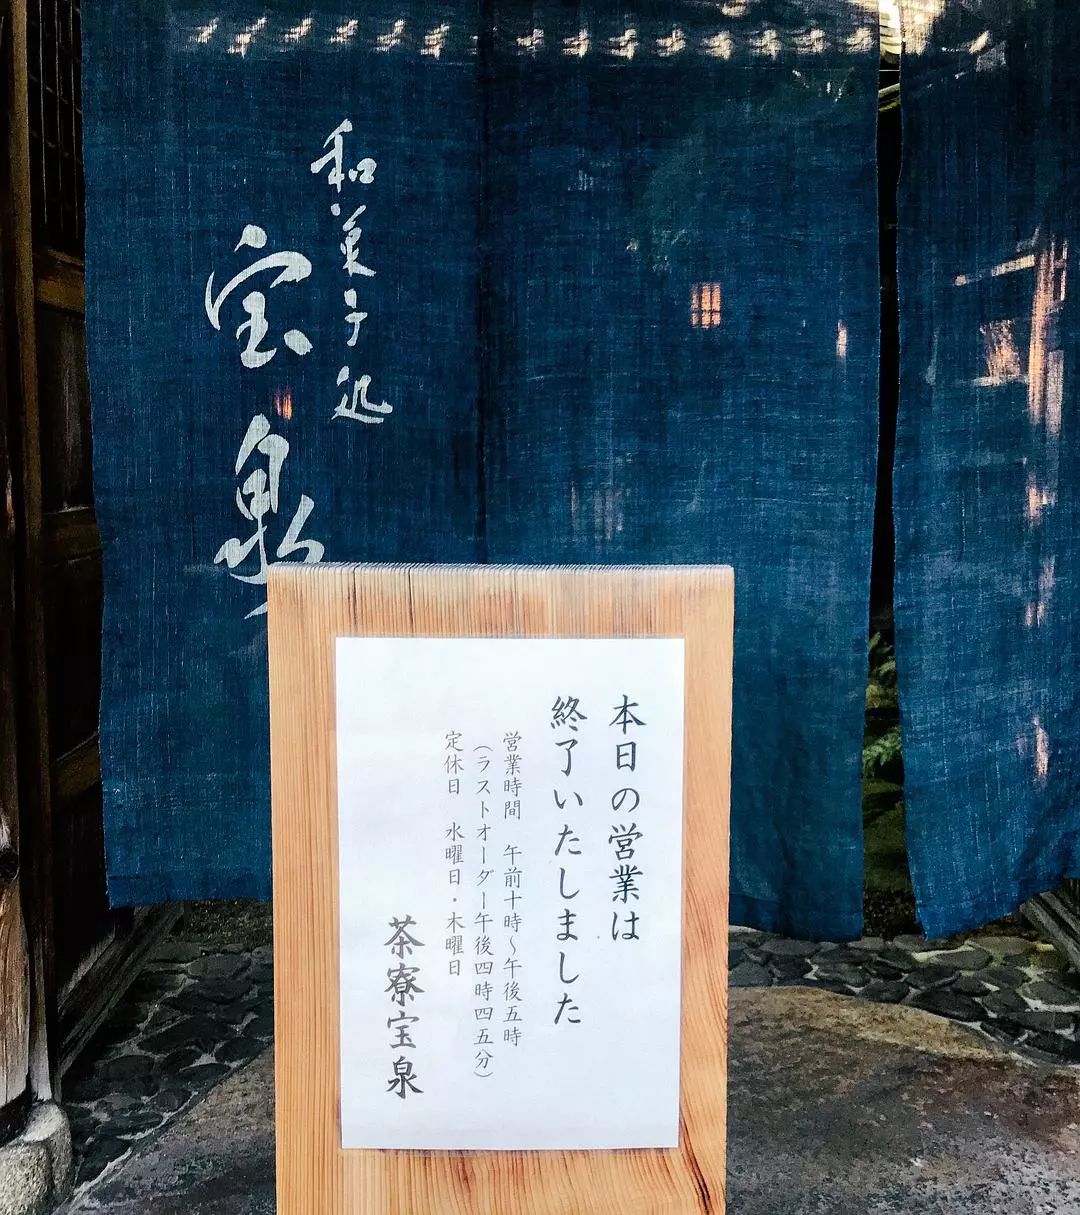 和菓子処
宝泉
本日の営業は
終了いたしました
営業時間 午前十時～午後五時
（ラストオーダー午後四時四五分）
定休日 水曜日・木曜日
茶寮宝泉